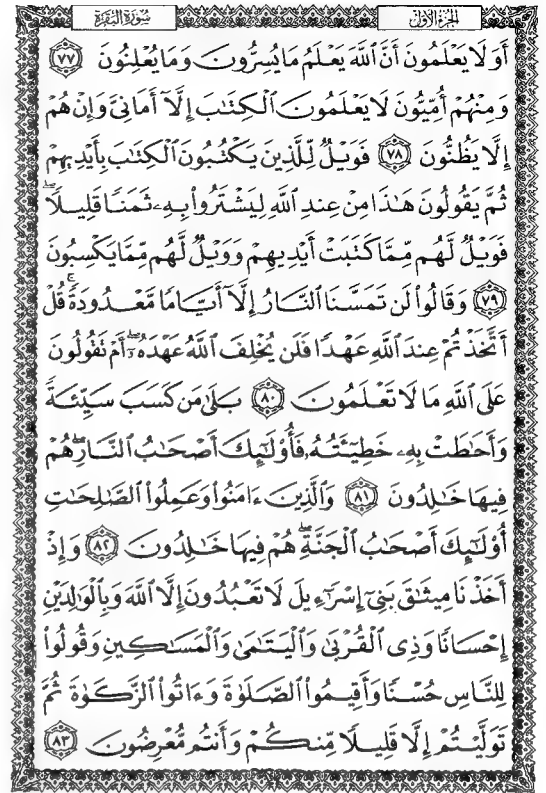 الجزء الأول
سورة البقرة
أَوَلَا يَعْلَمُونَ أَنَّ ٱللَّهَ يَعْلَمُ مَا يُسِرُّونَ وَمَا يُعْلِنُونَ ٧٧
وَمِنْهُمْ أُمِّيُّونَ لَا يَعْلَمُونَ ٱلْكِتَٰبَ إِلَّآ أَمَانِىَّ وَإِنْ هُمْ
إِلَّا يَظُنُّونَ ٧٨ فَوَيْلٌ لِّلَّذِينَ يَكْتُبُونَ ٱلْكِتَٰبَ بِأَيْدِيهِمْ
ثُمَّ يَقُولُونَ هَٰذَا مِنْ عِندِ ٱللَّهِ لِيَشْتَرُوا۟ بِهِۦ ثَمَنًا قَلِيلًا ۖ
فَوَيْلٌ لَّهُم مِّمَّا كَتَبَتْ أَيْدِيهِمْ وَوَيْلٌ لَّهُم مِّمَّا يَكْسِبُونَ
٧٩ وَقَالُوا۟ لَن تَمَسَّنَا ٱلنَّارُ إِلَّآ أَيَّامًا مَّعْدُودَةً ۚ قُلْ
أَتَّخَذْتُمْ عِندَ ٱللَّهِ عَهْدًا فَلَن يُخْلِفَ ٱللَّهُ عَهْدَهُۥٓ ۖ أَمْ تَقُولُونَ
عَلَى ٱللَّهِ مَا لَا تَعْلَمُونَ ٨٠ بَلَىٰ مَن كَسَبَ سَيِّئَةً
وَأَحَٰطَتْ بِهِۦ خَطِيٓـَٔتُهُۥ فَأُو۟لَٰٓئِكَ أَصْحَٰبُ ٱلنَّارِ ۖ هُمْ
فِيهَا خَٰلِدُونَ ٨١ وَٱلَّذِينَ ءَامَنُوا۟ وَعَمِلُوا۟ ٱلصَّٰلِحَٰتِ
أُو۟لَٰٓئِكَ أَصْحَٰبُ ٱلْجَنَّةِ ۖ هُمْ فِيهَا خَٰلِدُونَ ٨٢ وَإِذْ
أَخَذْنَا مِيثَٰقَ بَنِىٓ إِسْرَٰٓءِيلَ لَا تَعْبُدُونَ إِلَّا ٱللَّهَ وَبِٱلْوَٰلِدَيْنِ
إِحْسَانًا وَذِى ٱلْقُرْبَىٰ وَٱلْيَتَٰمَىٰ وَٱلْمَسَٰكِينِ وَقُولُوا۟
لِلنَّاسِ حُسْنًا وَأَقِيمُوا۟ ٱلصَّلَوٰةَ وَءَاتُوا۟ ٱلزَّكَوٰةَ ثُمَّ
تَوَلَّيْتُمْ إِلَّا قَلِيلًا مِّنكُمْ وَأَنتُم مُّعْرِضُونَ ٨٣